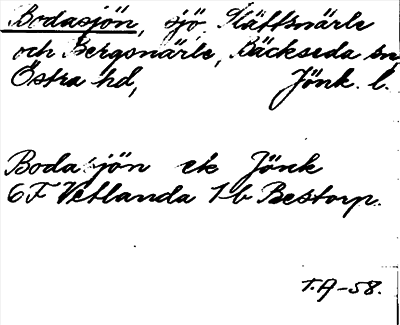 Bodasjön, sjö Slättsnärle
och Bergsnärle, Bäckseda sn,
Östra hd, Jönk. l.
Bodasjön ek Jönk
6F Vetlanda 1b Bestorp.
T.A-58.